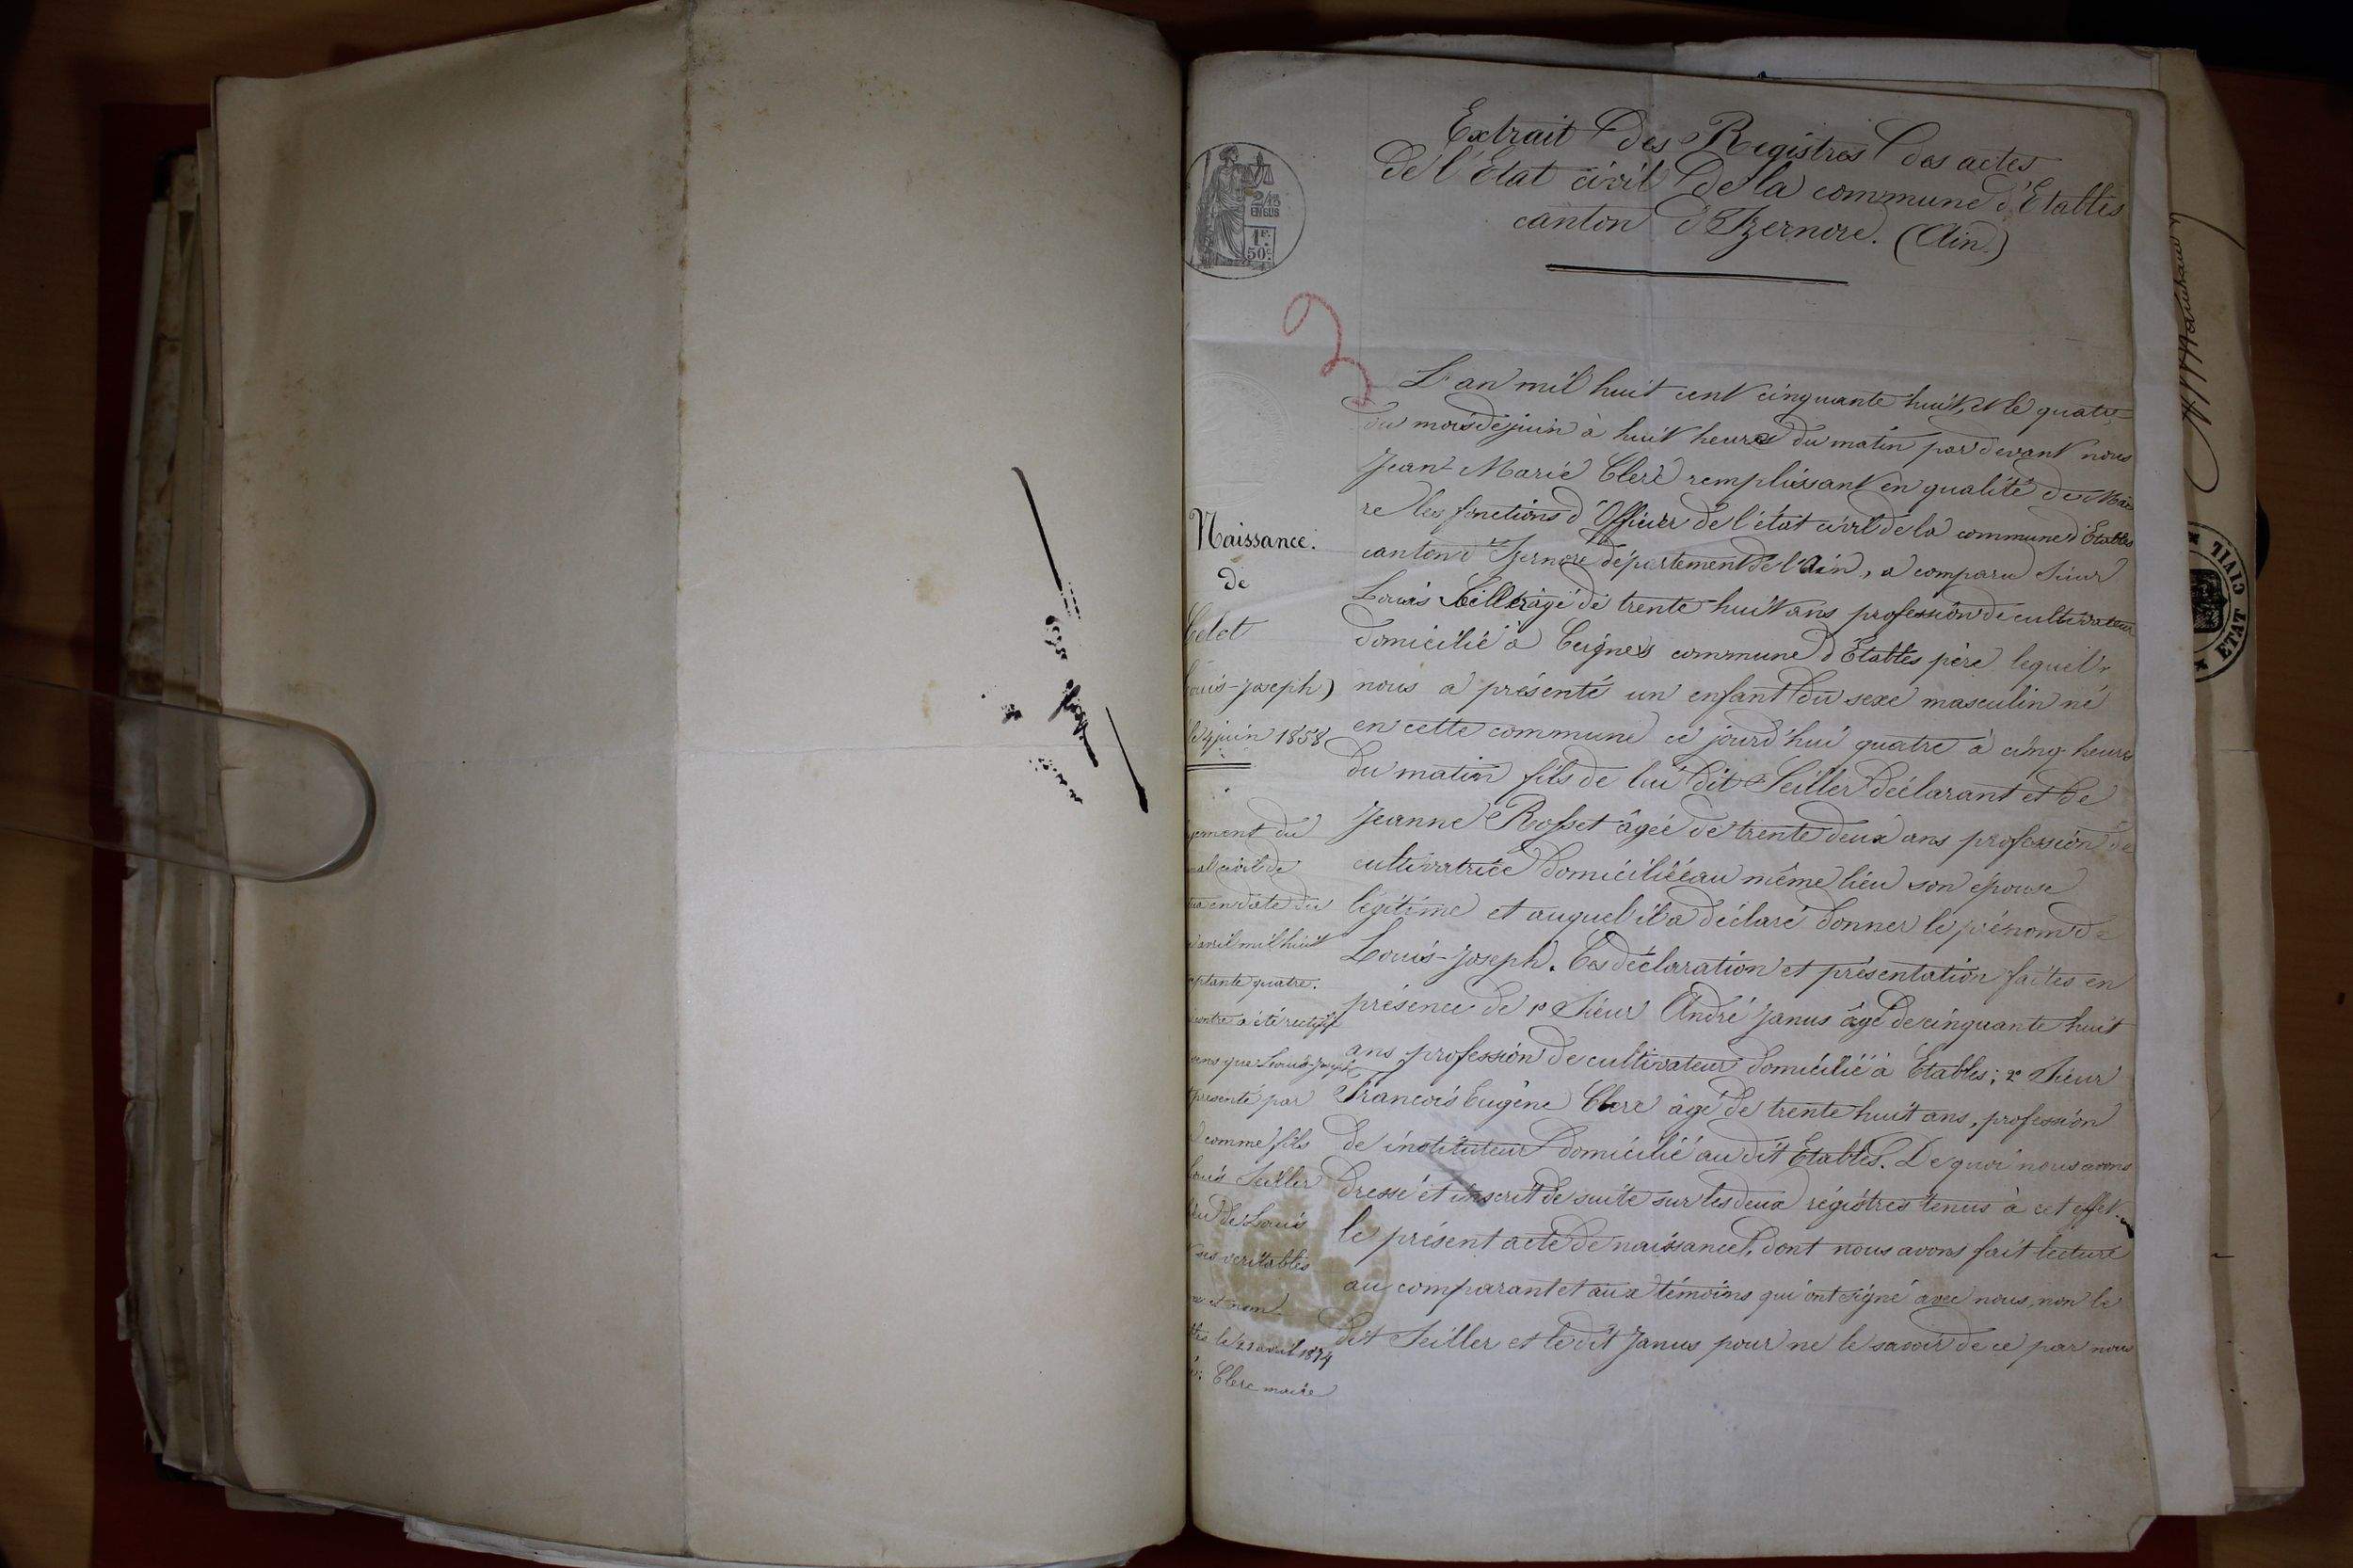 Extrait des Registres des actes
de l'Etat civil de la commune d'Etables
canton d'Izernore. (Ain)
2/10
EN SUS
1F.
50c.
3
Naissance.
de
Celet
Louis-Joseph)
le 4 juin 1858
L'an mil huit cent cinquante huit, et le quatre
du mois de juin à huit heures du matin par devant nous
Jean Marie Clerc remplissant en qualité de Mai
re les fonctions d'Officier de l'état civil de la commune d'Etables
canton d'Izernore département de l'Ain, a comparu Sieur
Louis Seiller âgé de trente huit ans profession de cultivateur
domicilié à Ceignes commune d'Etables père lequel
nous a présenté un enfant du sexe masculin né
en cette commune ce jourd'hui quatre à cinq heures
du matin fils de lui dit Seiller déclarant et de
Jeanne Rosset âgée de trente deux ans profession de
cultivatrice domiciliée au même lieu son épouse
légitime et auquel il a déclaré donner le prénom de
Louis-Joseph. Ces déclaration et présentation faites en
présence de 1° Sieur André Janus âgé de cinquante huit
ans profession de cultivateur domicilié à Etables; 2° Sieur
Francois Eugène Clerc âgé de trente huit ans, profession
de instituteur domicilié au dit Etables. De quoi nous avons
dressé et inscrit de suite sur les deux régistres tenus à cet effet
le présent acte de naissance, dont nous avons fait lecture
au comparant et aux témoins qui ont signé avec nous, non le
dit Seiller et le dit Janus pour ne le savoir de ce par nous
gement du
nal civil de
tua en date du
avril mil huit
eptante quatre.
contre a été rectifié
sens que Louis-Joseph
présenté par
comme fils
Louis Seiller
lieu de Louis
ses veritables
et nom
les le 21 avril 1874
Clerc maire
ETAT CIVIL